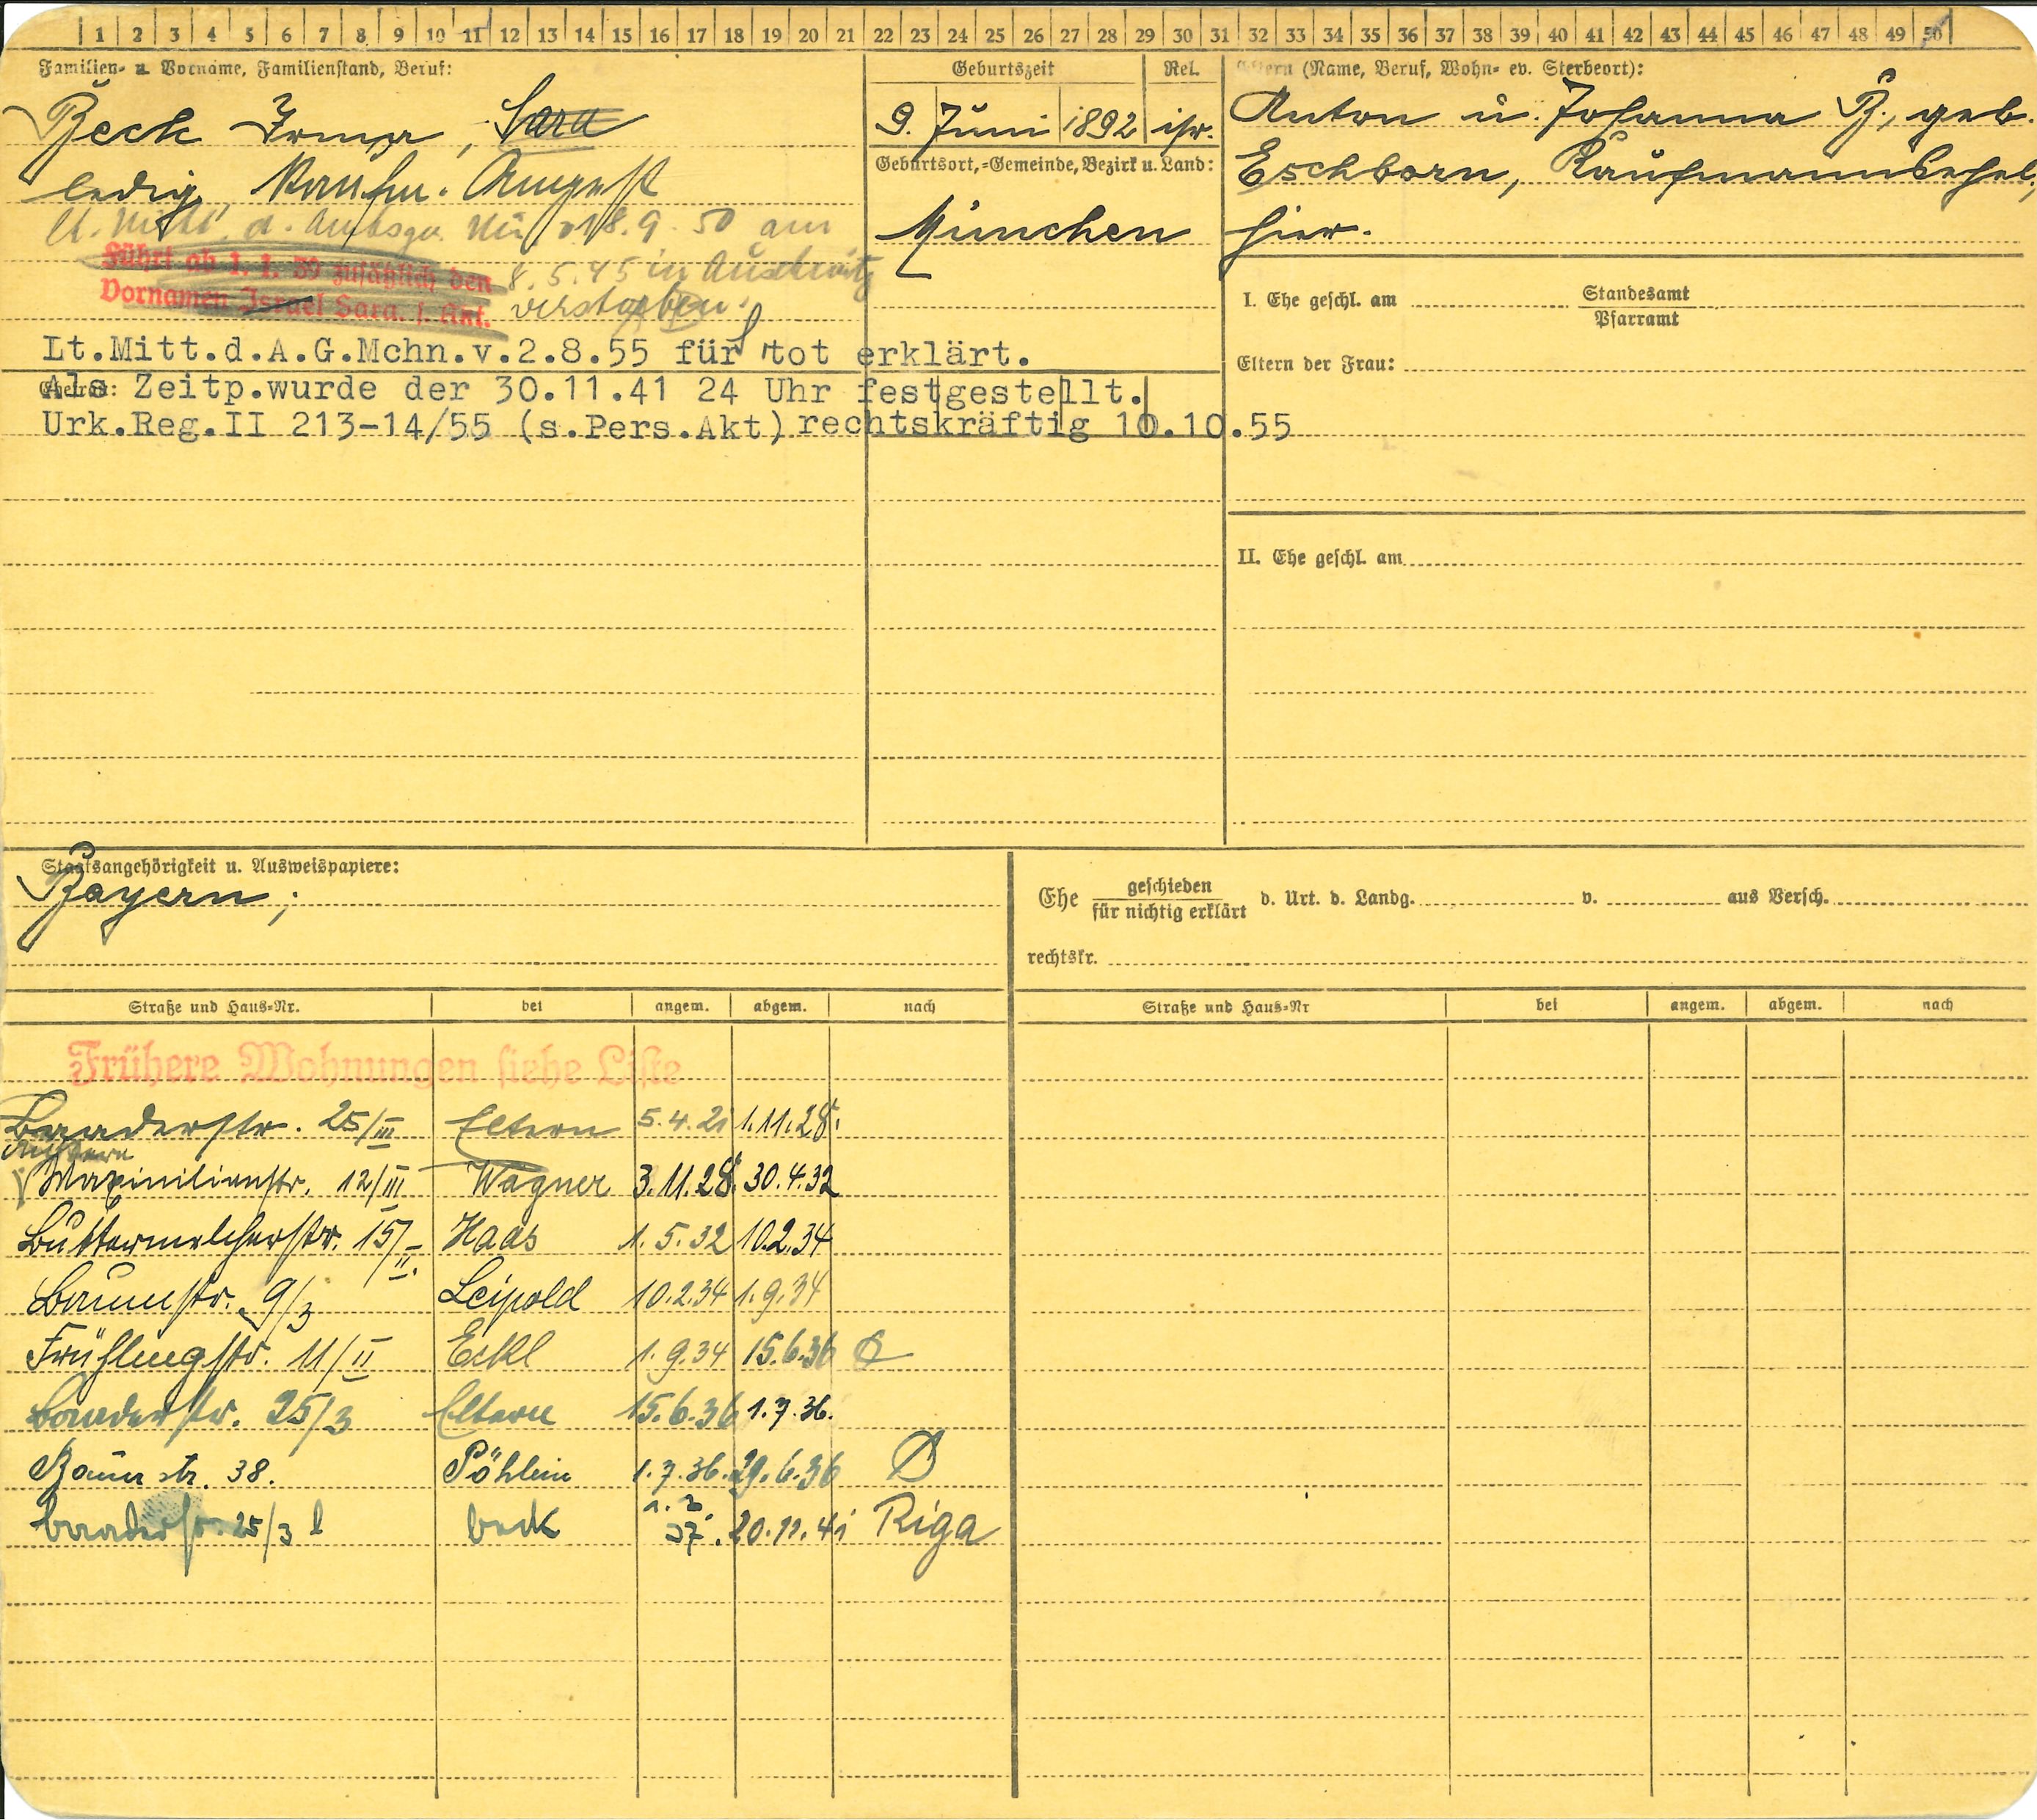 1 2 3 4 5 6 7 8 9 10 11 12 13 14 15 16 17 18 19 20 21 22 23 24 25 26 27 28 29 30 31 32 33 34 35 36 37 38 39 40 41 42 43 44 45 46 47 48 49 50
Familien- u. Vorname, Familienstand, Beruf:
Beck Irma, Sara
ledig, Kaufm. Angest
lt. Mitt. d. Amtsger. Mü v 18.9.50 am
8.5.45 in Auschwitz
verstorben.
Führt ab 1. 1. 39 zusätzlich den
Vornamen Israel Sara. s. Akt.
Lt.Mitt.d.A.G.Mchn.v.2.8.55 für tot erklärt.
Als Zeitp.wurde der 30.11.41 24 Uhr festgestellt.
Urk.Reg.II 213-14/55 (s.Pers.Akt) rechtskräftig 10.10.55
Geburtszeit
Rel.
9. Juni 1892 isr.
Geburtsort,=Gemeinde, Bezirk u. Land:
München
Eltern (Name, Beruf, Wohn- ev. Sterbeort):
Anton u. Johanna B., geb.
Eschborn, Kaufmannsehel,
hier.
I. Ehe geschl. am
Standesamt
Pfarramt
Eltern der Frau:
II. Ehe geschl. am
Staatsangehörigkeit u. Ausweispapiere:
Bayern;
Ehe geschieden
für nichtig erklärt d. Urt. d. Landg. v. aus Versch.
rechtskr.
Straße und Haus=Nr. bei angem. abgem. nach
Straße und Haus=Nr bei angem. abgem. nach
Frühere Wohnungen siehe Liste
Baaderstr. 25/III Eltern 5.4.21 1.11.28.
Äußere
Maximilianstr. 12/III Wagner 3.11.28. 30.4.32
Buttermelcherstr. 15/II. Haas 1.5.32 10.2.34
Baumstr. 9/3 Leipold 10.2.34 1.9.34
Frühlingstr. 11/II Eckl 1.9.34 15.6.36
Baaderstr. 25/3 Eltern 15.6.36 1.7.36.
Bauerstr. 38. Pöhlein 1.7.36. 29.6.36
Baaderstr. 25/3 l Beck 1.7.37. 20.11.41 Riga